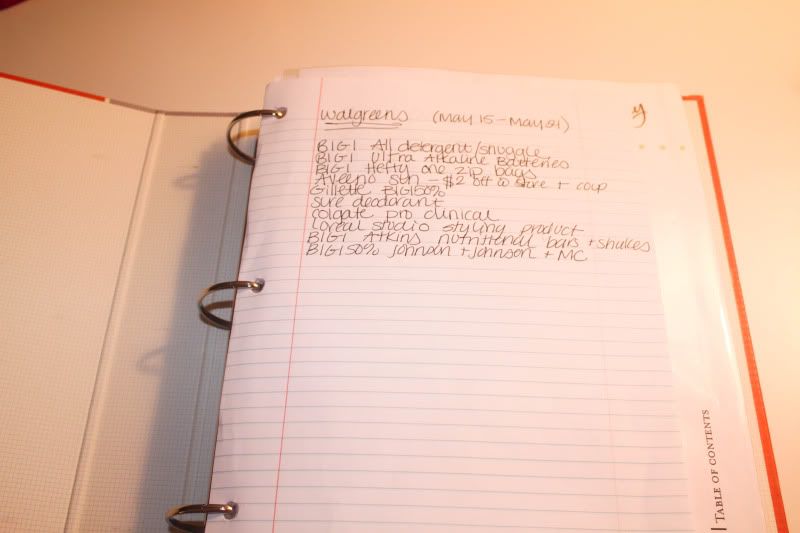 Walgreens (May 15 - May 21)
B1G1 All detergent/snuggle
B1G1 Ultra Alkaline Batteries
B1G1 Hefty one zip bags
Aveeno sun - $2 off w store + coup
Gillette B1G150%
sure deodorant
colgate pro clinical
Loreal studio styling product
B1G1 Atkins nutritional bars + shakes
B1G150% Johnson + Johnson + MC
TABLE OF CONTENTS